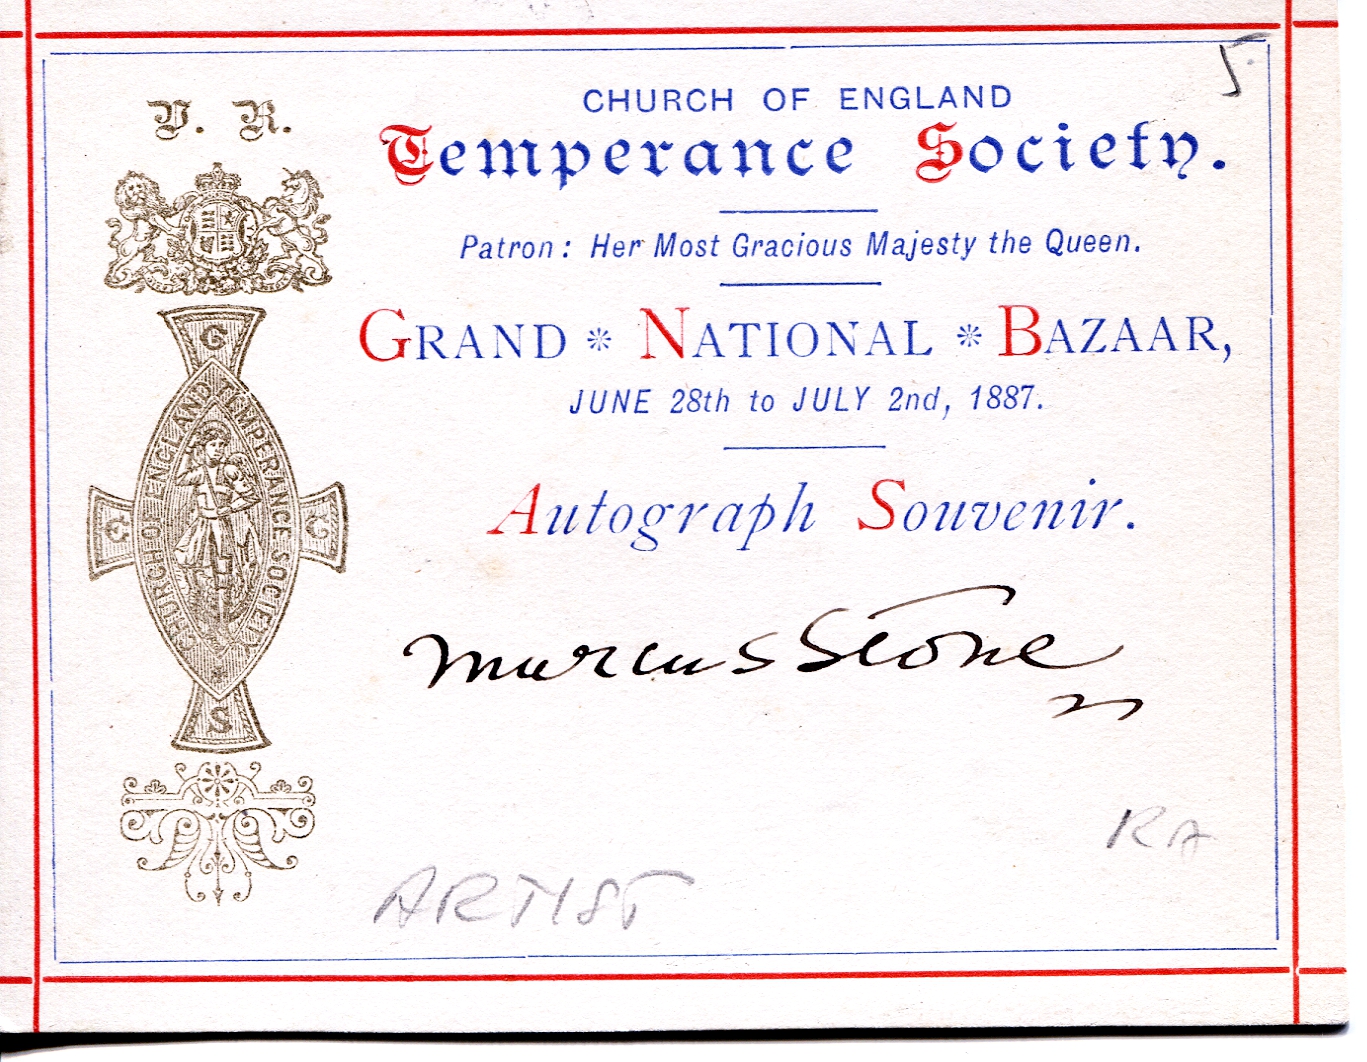 5
V. R.
CHURCH OF ENGLAND
Temperance Society.
Patron: Her Most Gracious Majesty the Queen.
GRAND * NATIONAL * BAZAAR,
JUNE 28th to JULY 2nd, 1887.
Autograph Souvenir.
C
CHURCH OF ENGLAND TEMPERANCE SOCIETY
E
T
S
Marcus Stone
RA
ARTIST